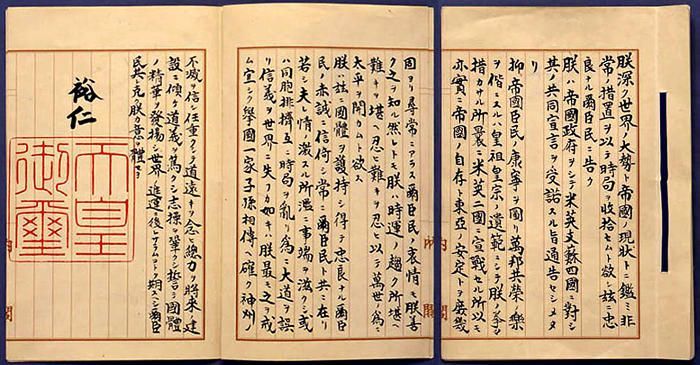 朕深ク世界ノ大勢ト帝國ノ現状トニ鑑ミ非
常ノ措置ヲ以テ時局ヲ收拾セムト欲シ茲ニ忠
良ナル爾臣民ニ告ク
朕ハ帝國政府ヲシテ米英支蘇四國ニ對シ
其ノ共同宣言ヲ受諾スル旨通告セシメタ
リ
抑帝國臣民ノ康寧ヲ圖リ萬邦共榮ノ樂
ヲ偕ニスルハ皇祖皇宗ノ遺範ニシテ朕ノ拳々
措カサル所曩ニ米英二國ニ宣戰セル所以モ
亦實ニ帝國ノ自存ト東亞ノ安定トヲ庶幾
内閣
固ヨリ尋常ニアラス爾臣民ノ衷情モ朕善
ク之ヲ知ル然レトモ朕ハ時運ノ趨ク所堪ヘ
難キヲ堪ヘ忍ヒ難キヲ忍ヒ以テ萬世ノ為ニ
太平ヲ開カムト欲ス
朕ハ茲ニ國體ヲ護持シ得テ忠良ナル爾臣
民ノ赤誠ニ信倚シ常ニ爾臣民ト共ニ在リ
若シ夫レ情ノ激スル所濫ニ事端ヲ滋クシ或
ハ同胞排擠互ニ時局ヲ亂リ為ニ大道ヲ誤
リ信義ヲ世界ニ失フカ如キハ朕最モ之ヲ戒
ム宜シク擧國一家子孫相傳ヘ確ク神州ノ
不滅ヲ信シ任重クシテ道遠キヲ念ヒ總力ヲ將來ノ建
設ニ傾ケ道義ヲ篤クシ志操ヲ鞏クシ誓テ國體
ノ精華ヲ發揚シ世界ノ進運ニ後レサラムコトヲ期スヘシ爾臣
民其レ克ク朕カ意ヲ體セヨ
裕仁
天皇
御璽
内閣